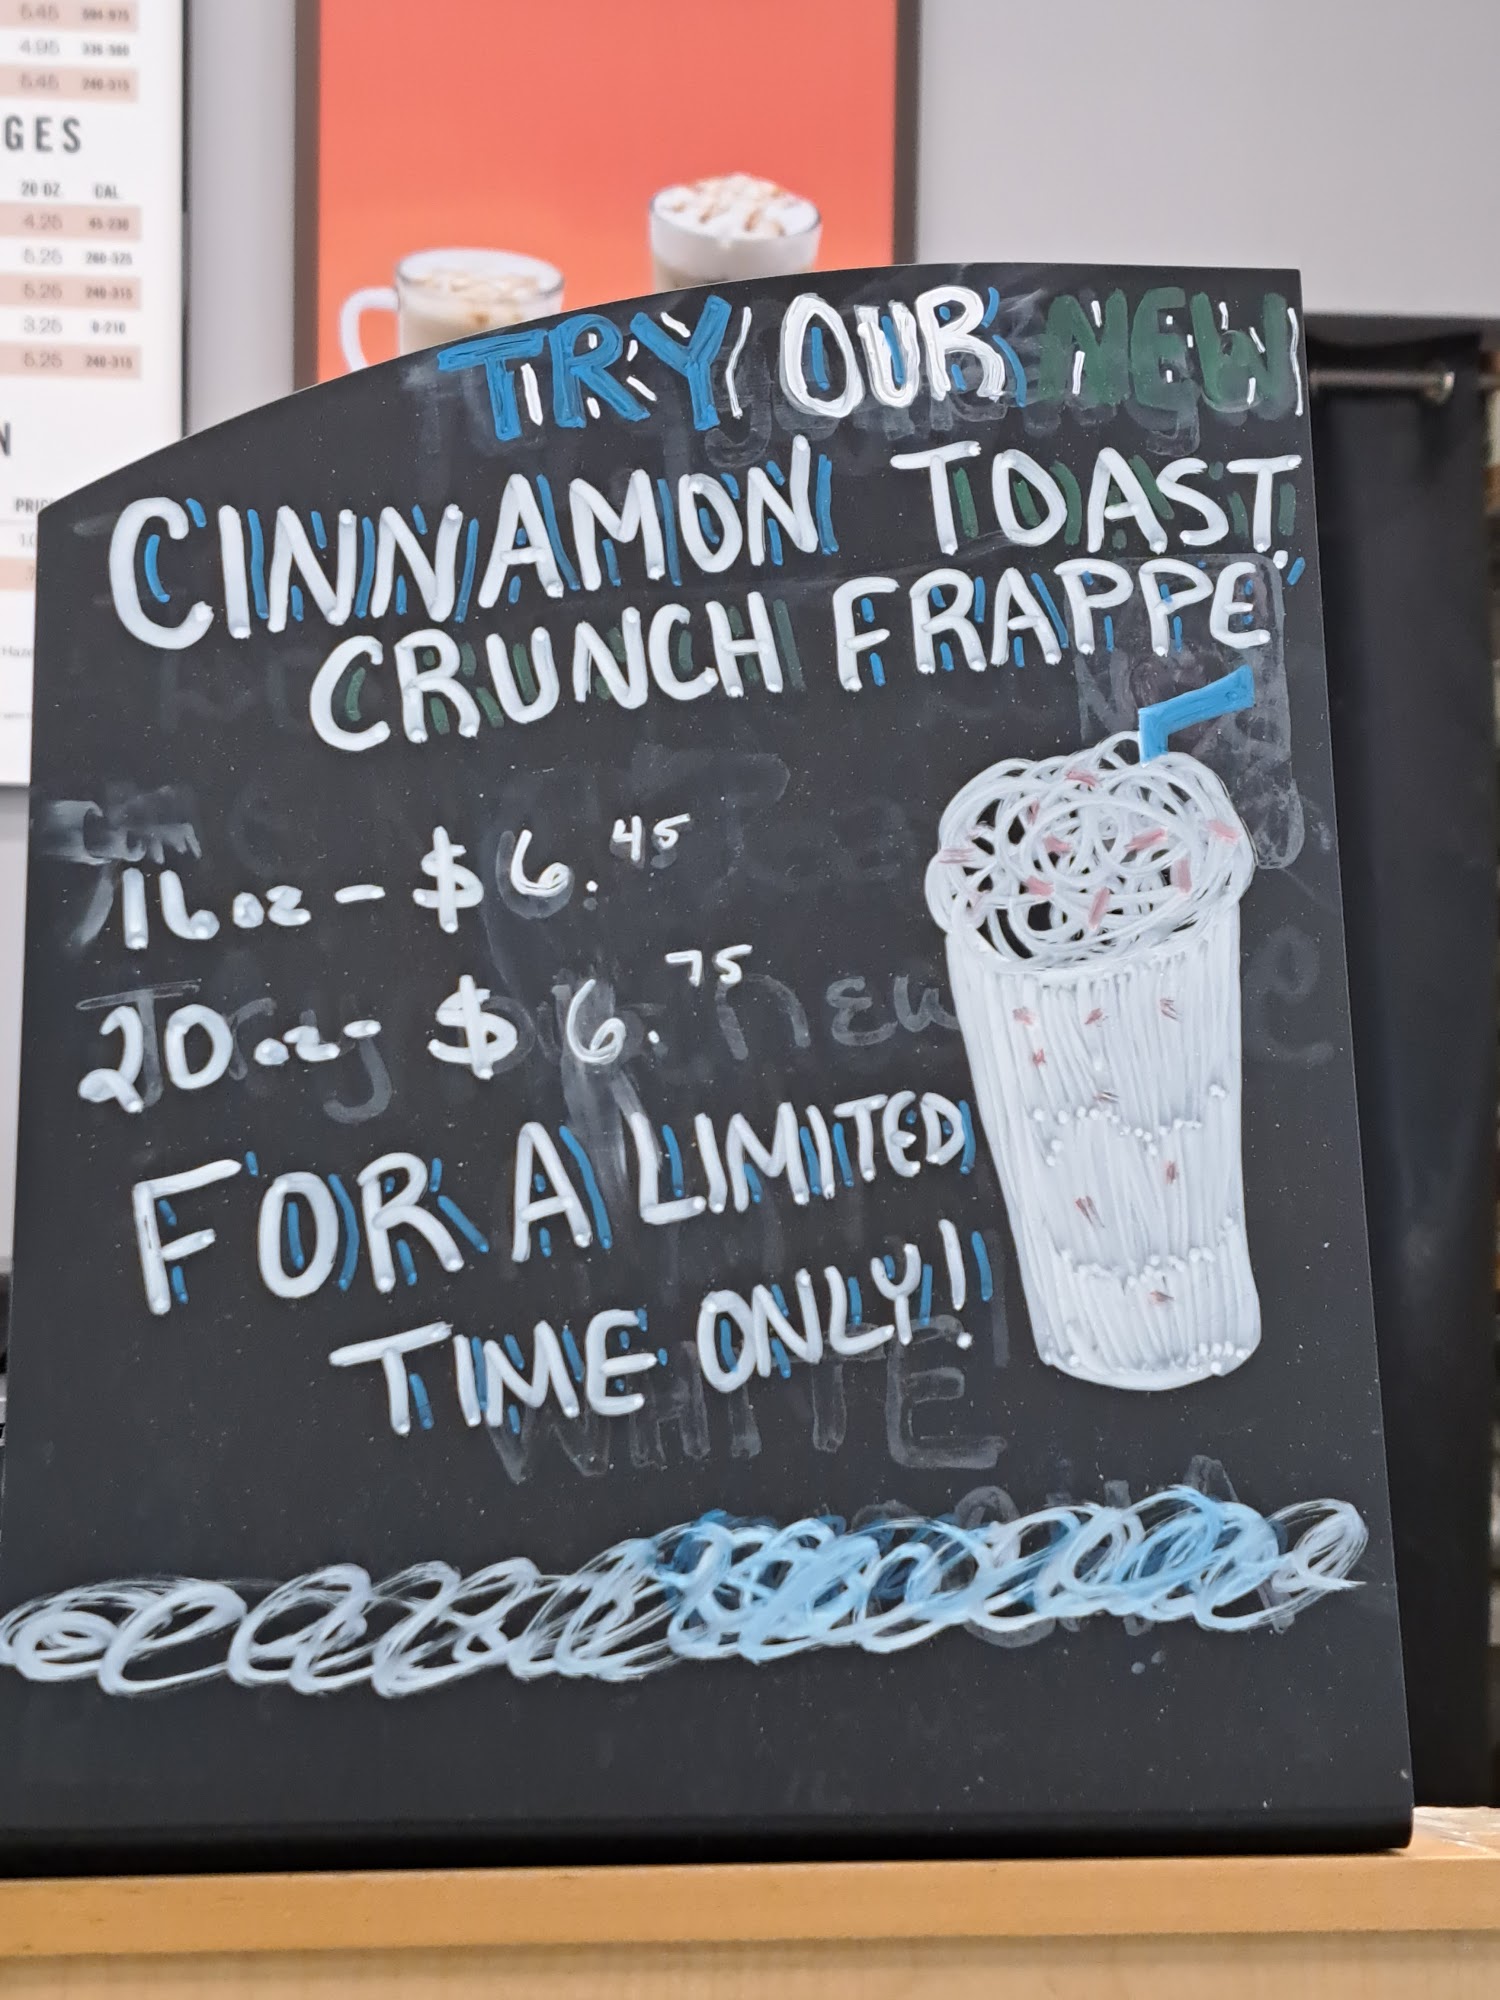 5.45 594-975
4.95 336-560
5.45 248-515
GES
20 OZ. CAL.
4.25 45-230
5.25 260-525
5.25 240-315
3.25 0-210
5.25 240-315
N
TRY OUR NEW
CINNAMON TOAST
CRUNCH FRAPPE
16 oz - $6.45
20 oz - $6.75
Try our new
FOR A LIMITED
TIME ONLY!
WHITE